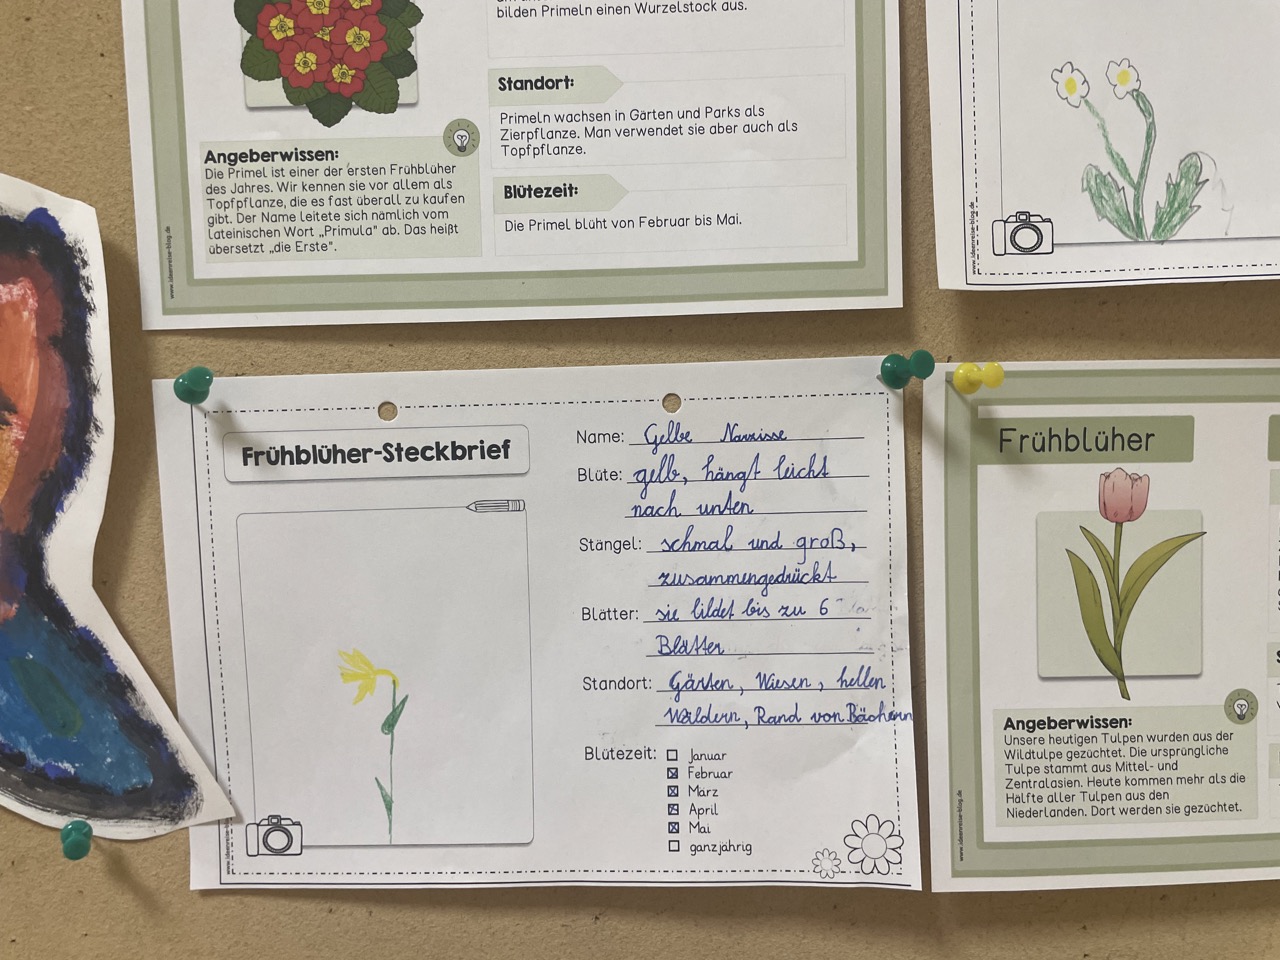 bilden Primeln einen Wurzelstock aus.
Standort:
Primeln wachsen in Gärten und Parks als
Zierpflanze. Man verwendet sie aber auch als
Topfpflanze.
Blütezeit:
Die Primel blüht von Februar bis Mai.
Angeberwissen:
Die Primel ist einer der ersten Frühblüher
des Jahres. Wir kennen sie vor allem als
Topfpflanze, die es fast überall zu kaufen
gibt. Der Name leitete sich nämlich vom
lateinischen Wort „Primula" ab. Das heißt
übersetzt „die Erste".
www.ideenreise-blog.de
www.ideenreise-blog.de
Frühblüher-Steckbrief
Name: Gelbe Narzisse
Blüte: gelb, hängt leicht
nach unten
Stängel: schmal und groß,
zusammengedrückt
Blätter: sie bildet bis zu 6
Blätter
Standort: Gärten, Wiesen, hellen
Wäldern, Rand von Bächern
Blütezeit:
☐ Januar
☒ Februar
☒ März
☒ April
☒ Mai
☐ ganzjährig
www.ideenreise-blog.de
Frühblüher
Angeberwissen:
Unsere heutigen Tulpen wurden aus der
Wildtulpe gezüchtet. Die ursprüngliche
Tulpe stammt aus Mittel- und
Zentralasien. Heute kommen mehr als die
Hälfte aller Tulpen aus den
Niederlanden. Dort werden sie gezüchtet.
www.ideenreise-blog.de